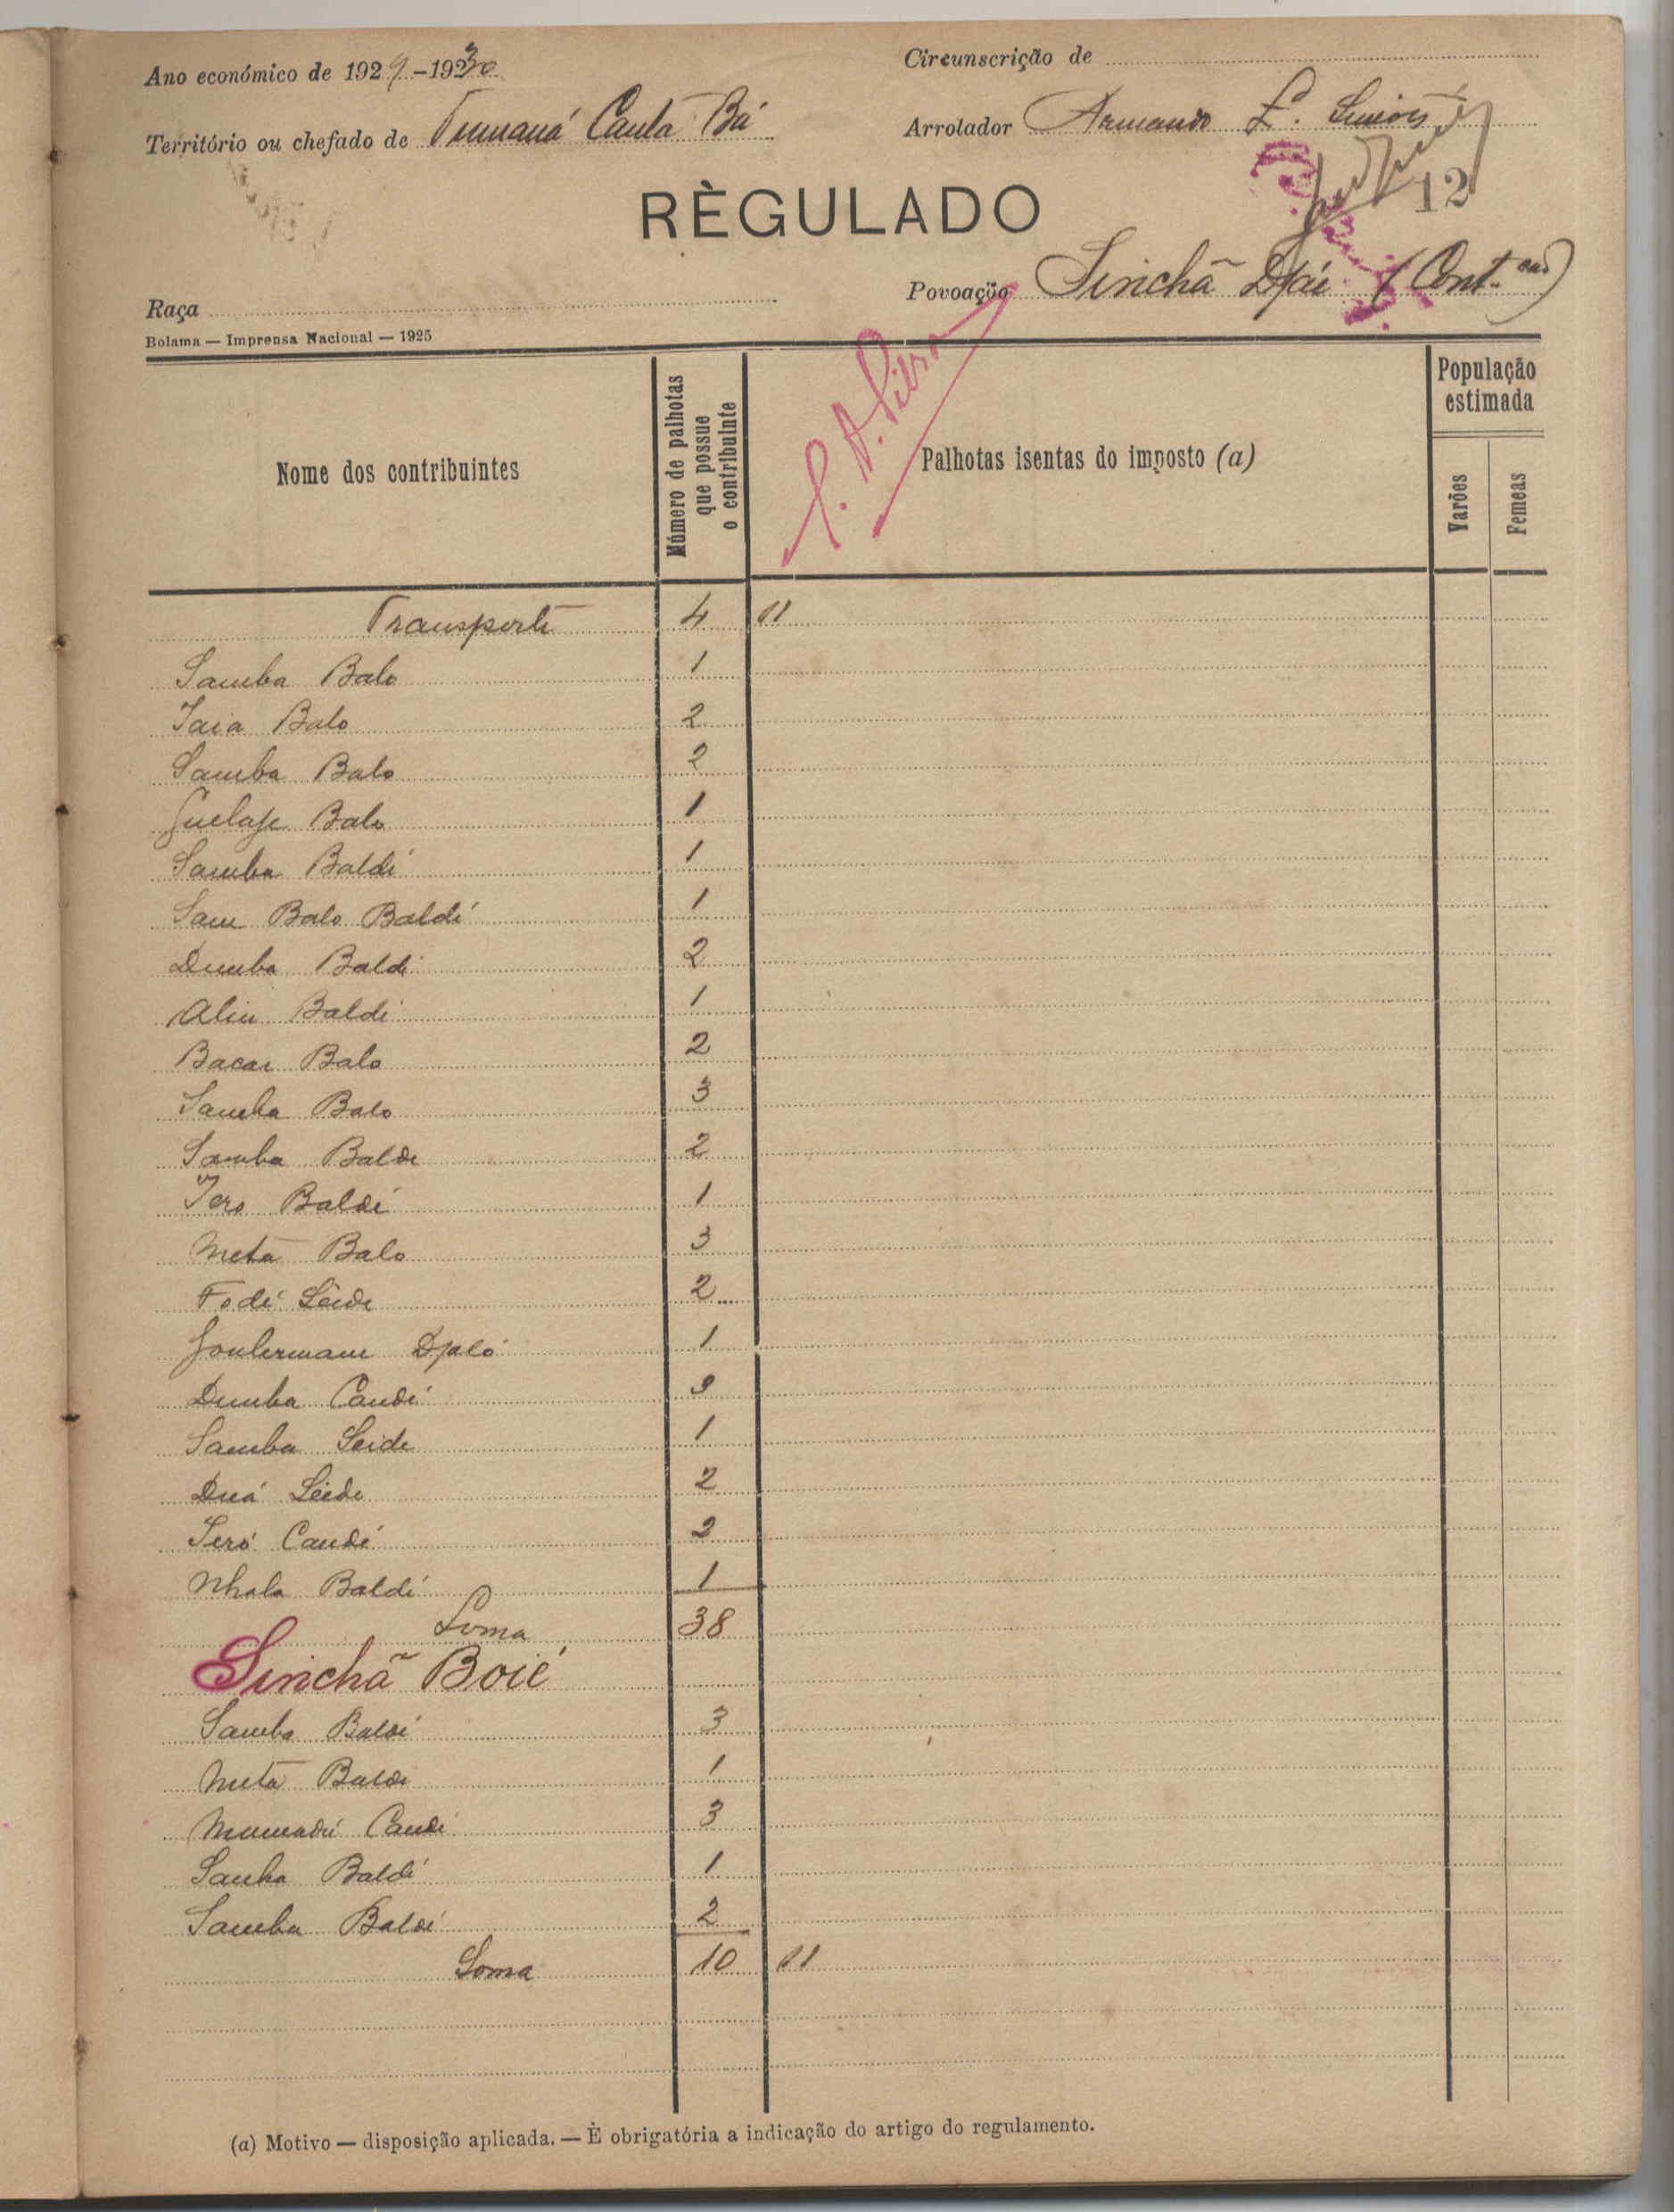 Ano económico de 1929-1930
Circunscrição de
Território ou chefado de Tumaná Canta Bá
Arrolador Armando L. Simões
12
RÈGULADO
Povoação Sinchã Djái (Cont.ção)
Raça
Bolama — Imprensa Nacional — 1925
Nome dos contribuintes
Número de palhotas que possue o contribuinte
Palhotas isentas do imposto (a)
População estimada
Varões
Femeas
Transporte 4 11
Samba Balo 1
Iaia Balo 2
Samba Balo 2
Balo 1
Samba Baldé 1
Sam Balo Baldé 1
Demba Baldé 2
Aliu Baldé 1
Bacar Balo 2
Samba Balo 3
Samba Balde 2
Iero Baldé 1
Metá Balo 3
Fodé Seide 2
Djaló 1
Demba Candé 2
Samba Seide 1
Duá Seide 2
Ieró Candé 2
Nhala Baldé 1
Soma 38
Sinchã Boié
Samba Baldé 3
Metá Balde 1
Mamadú Candé 3
Sanha Baldé 1
Samba Baldé 2
Soma 10 11
(a) Motivo — disposição aplicada. — È obrigatória a indicação do artigo do regulamento.